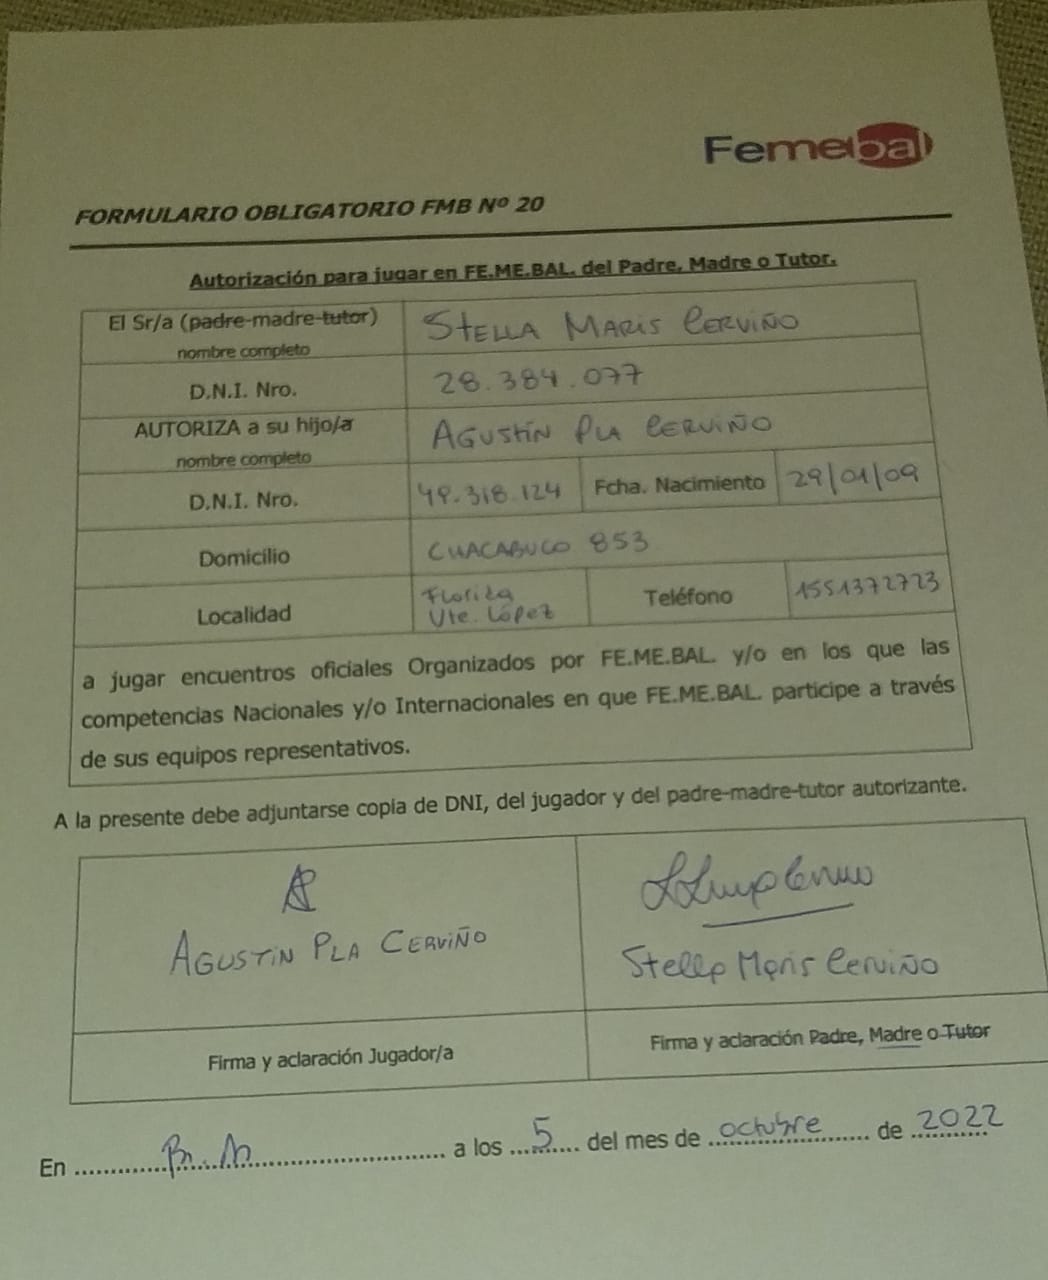 Femebal
FORMULARIO OBLIGATORIO FMB Nº 20
Autorización para jugar en FE.ME.BAL. del Padre, Madre o Tutor.
El Sr/a (padre-madre-tutor)
nombre completo
STELLA MARIS CERVIÑO
D.N.I. Nro.
28.384.077
AUTORIZA a su hijo/a
nombre completo
AGUSTÍN PLA CERVIÑO
D.N.I. Nro.
49.318.124
Fcha. Nacimiento
29/01/09
Domicilio
CHACABUCO 853
Localidad
Florida
Vte. López
Teléfono
1551372723
a jugar encuentros oficiales Organizados por FE.ME.BAL. y/o en los que las
competencias Nacionales y/o Internacionales en que FE.ME.BAL. participe a través
de sus equipos representativos.
A la presente debe adjuntarse copia de DNI, del jugador y del padre-madre-tutor autorizante.
AGUSTÍN PLA CERVIÑO
Stella Maris Cerviño
Firma y aclaración Jugador/a
Firma y aclaración Padre, Madre o Tutor
En ........ a los ... 5 ... del mes de octubre de 2022